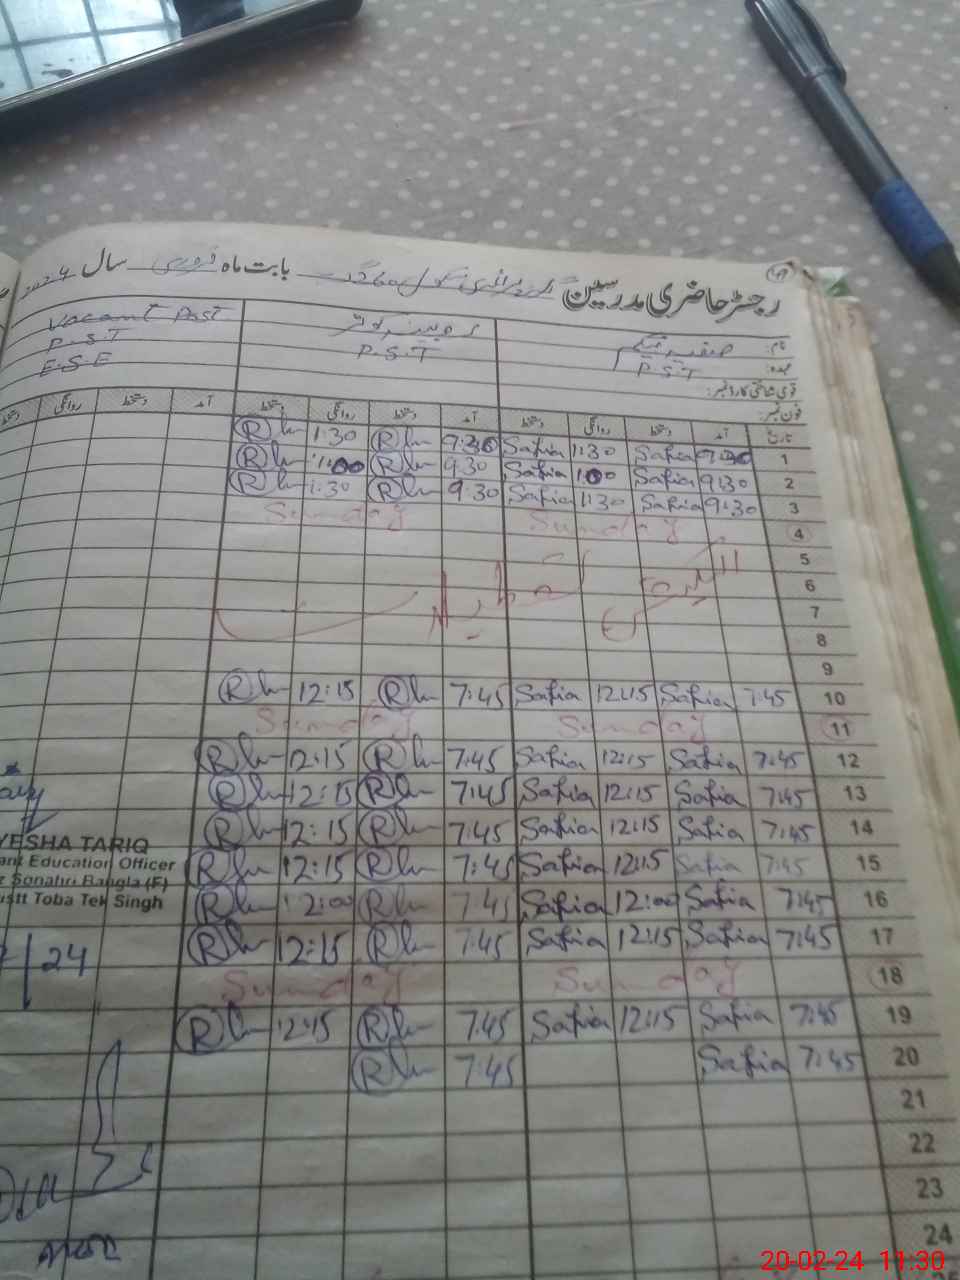 رجسٹر حاضری مدرسین گورنمنٹ پرائمری سکول 260 گ ب بابت ماہ فروری سال 2024
نام: صفیہ بیگم روبینہ کوثر Vacant Post
عہدہ: P.S.T P.S.T P.S.T
E.S.E
قومی شناختی کارڈ نمبر:
فون نمبر:
تاریخ آمد دستخط روانگی دستخط آمد دستخط روانگی دستخط آمد دستخط دستخط روانگی دستخط
R 1:30 R 9:30 Safia 1:30 Safia 9:30 1
R 1:00 R 9:30 Safia 1:00 Safia 9:30 2
R 1:30 R 9:30 Safia 1:30 Safia 9:30 3
Sunday Sunday 4
5
الیکشن تعطیلات 6
7
8
9
R 12:15 R 7:45 Safia 12:15 Safia 7:45 10
Sunday Sunday 11
R 12:15 R 7:45 Safia 12:15 Safia 7:45 12
R 12:15 R 7:45 Safia 12:15 Safia 7:45 13
R 12:15 R 7:45 Safia 12:15 Safia 7:45 14
R 12:15 R 7:45 Safia 12:15 Safia 7:45 15
R 12:00 R 7:45 Safia 12:00 Safia 7:45 16
R 12:15 R 7:45 Safia 12:15 Safia 7:45 17
Sunday Sunday 18
R 12:15 R 7:45 Safia 12:15 Safia 7:45 19
R 7:45 Safia 7:45 20
21
22
23
24
YESHA TARIQ
ant Education Officer
z Sonahri Bangla (F)
istt Toba Tek Singh
24
20-02-24 11:30